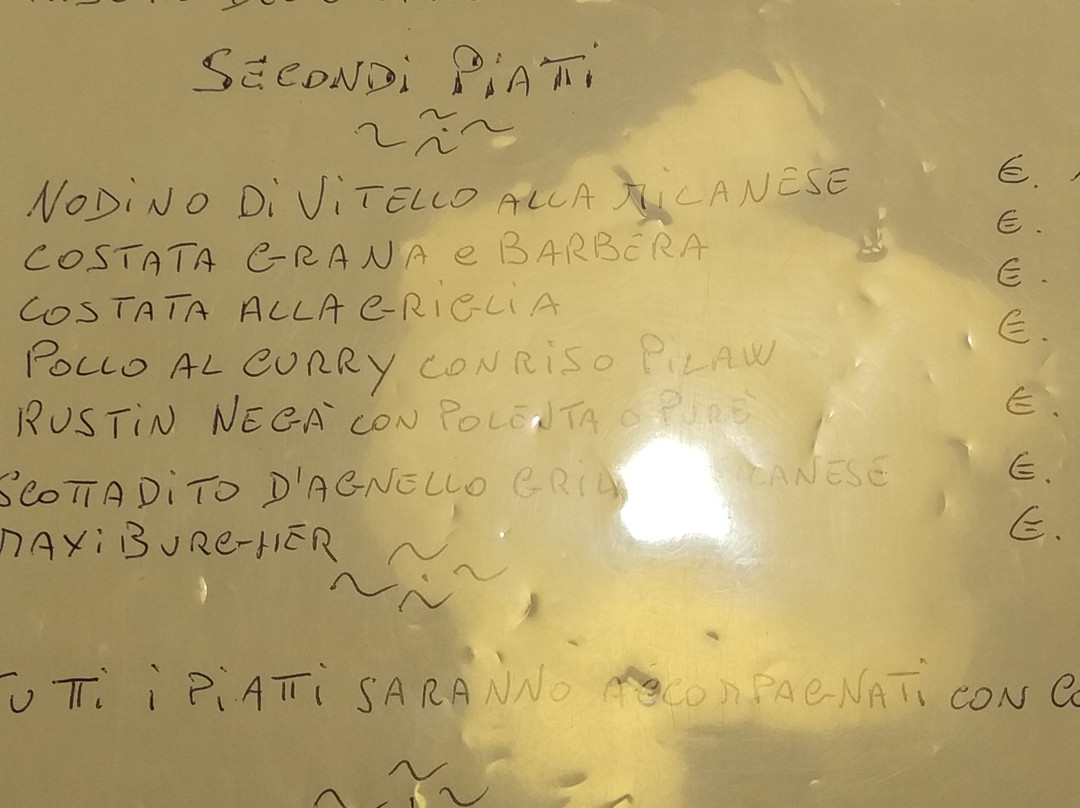 SECONDI PIATTI
NODINO DI VITELLO ALLA MILANESE €.
COSTATA GRANA e BARBERA €.
COSTATA ALLA GRIGLIA €.
POLLO AL CURRY CON RISO PILAW €.
RUSTIN NEGÀ CON POLENTA O PURÈ €.
SCOTTADITO D'AGNELLO €.
MAXI BURGHER €.
TUTTI I PIATTI SARANNO ACCOMPAGNATI CON